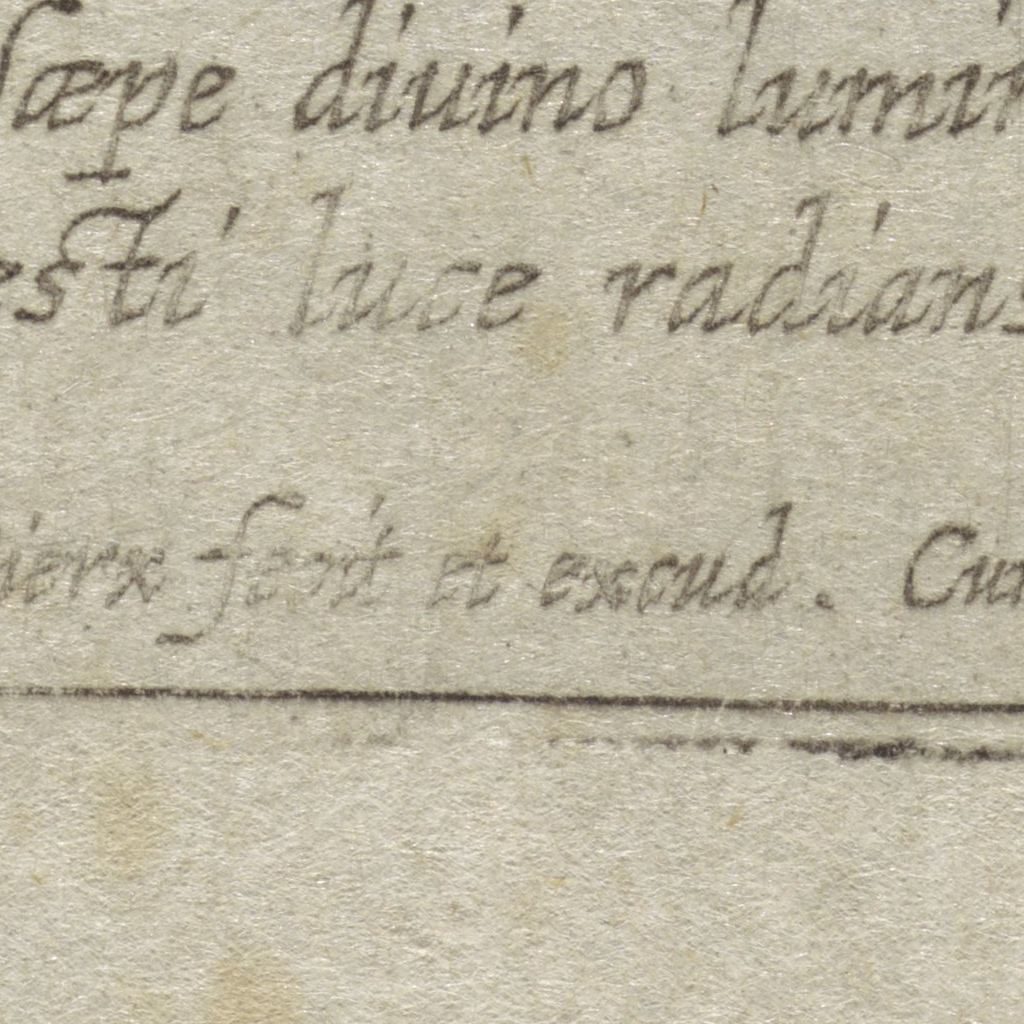 sæpe divino lumin
esti luce radians
ierx fecit et excud. Cum